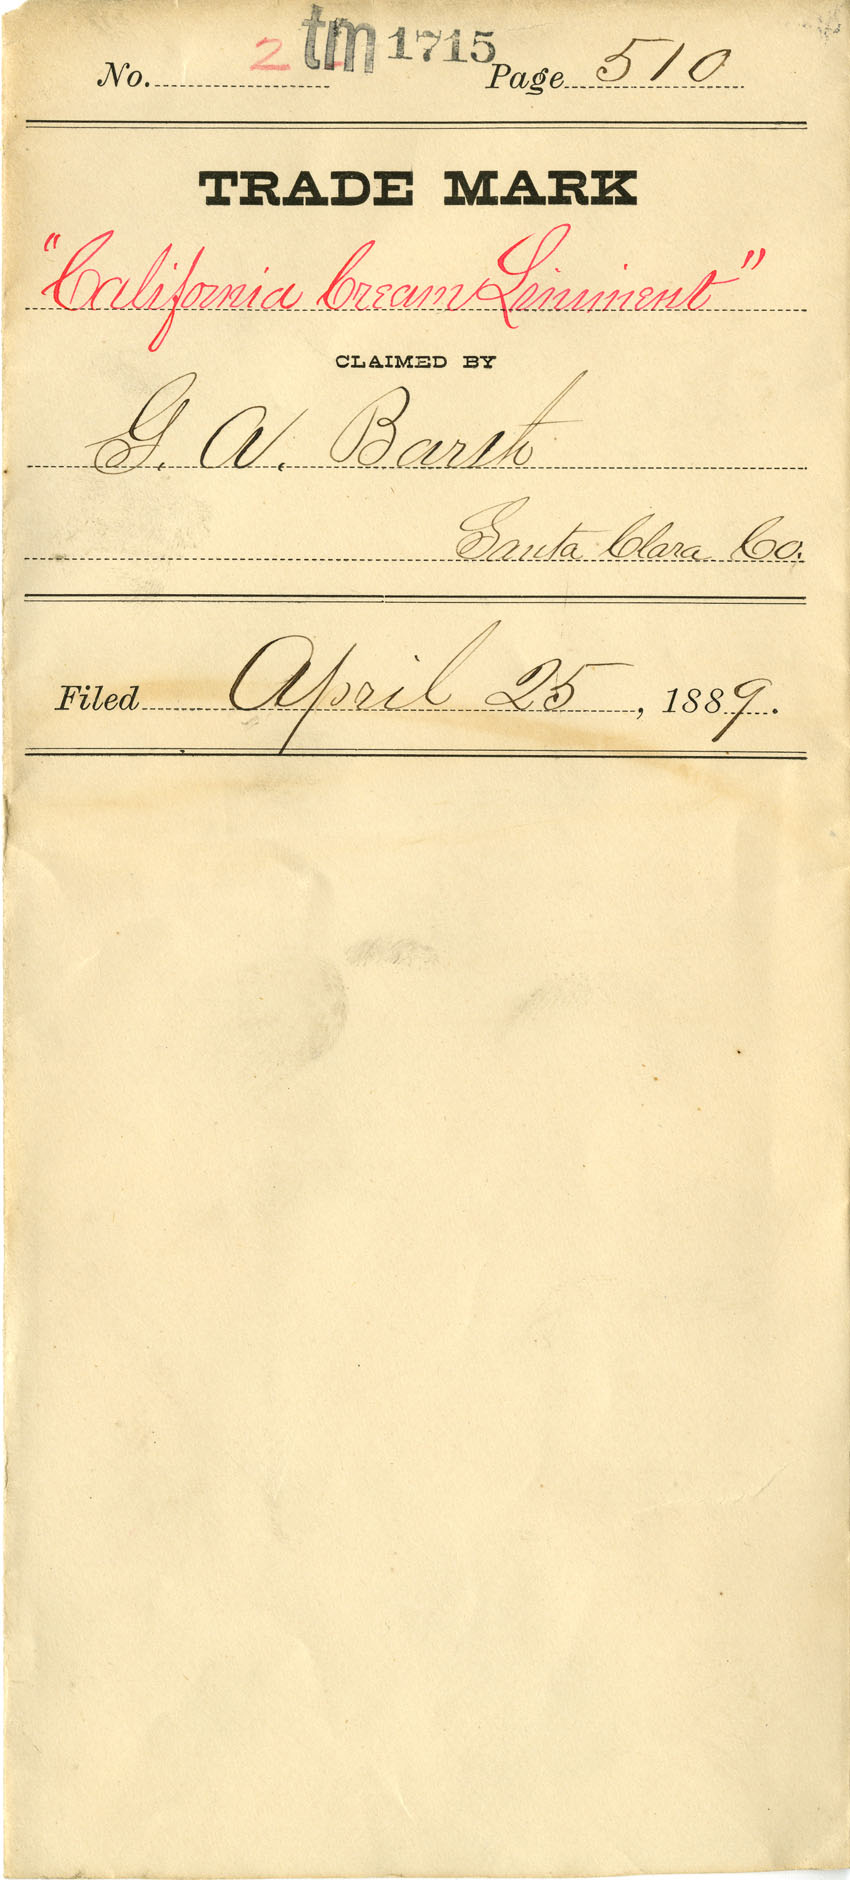 No. 2 tm 1715 Page 510
TRADE MARK
"California Cream Liniment"
CLAIMED BY
G. W. Barth
Santa Clara Co.
Filed April 25, 1889.